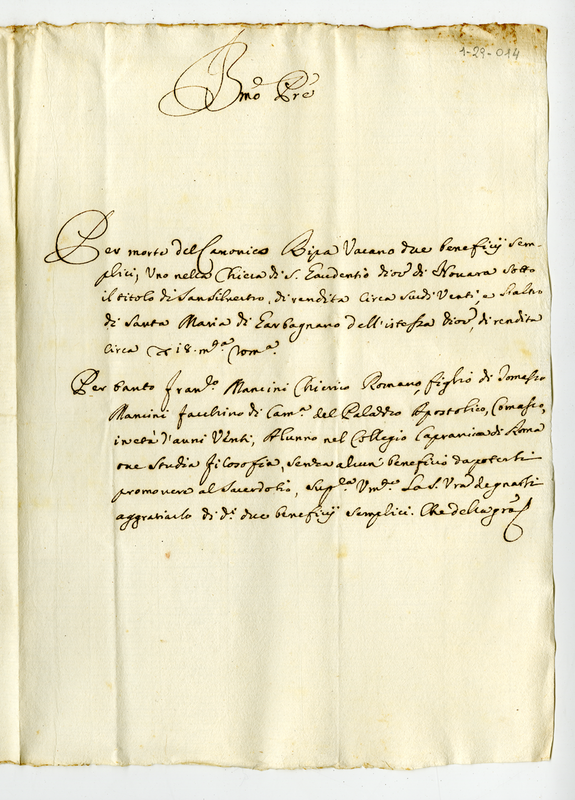 1-29-014
Bmo Pre
Per morte del Canonico Bipa Vacano due beneficij sem-
plici, Uno nella Chiesa di S. Gaudentio dioc. di Novara sotto
il titolo di San Silvestro, di rendita circa scudi Venti, e l'altro
di Santa Maria di Garbagnano dell'istessa dioc., di rendita
circa 18. mta Roma.
Per tanto Fran.co Mancini Chierico Romano, figlio di Tomasso
Mancini facchino di Cam.a del Palazzo Apostolico, Comasco,
in età d'anni Venti, Alunno nel Collegio Capranica di Roma
oue studia filosofia, senza alcun beneficio da potersi
promovere al Sacerdotio, sup.ca Vm.te La S. Vra degnarsi
aggratiarlo di d.i due beneficij semplici. Che della gra